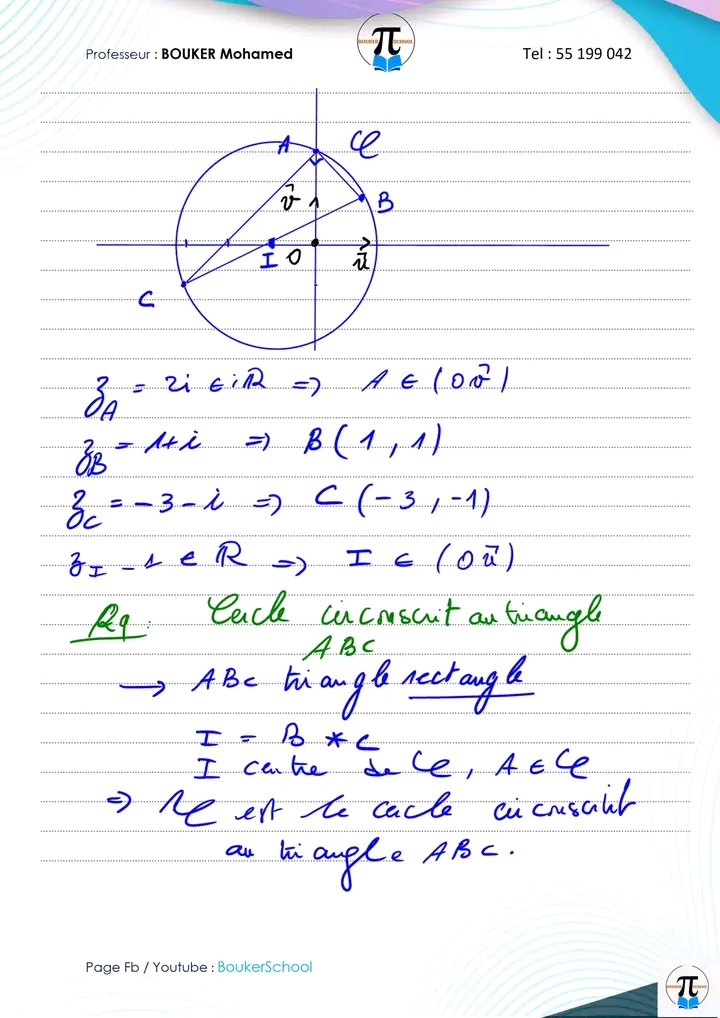 Professeur : BOUKER Mohamed
BOUKER SCHOOL
π
Tel : 55 199 042
A
𝒞
v⃗
1
B
I
O
u⃗
C
z_A = 2i ∈ iℝ => A ∈ (O v⃗)
z_B = 1+i => B(1,1)
z_C = -3-i => C(-3,-1)
z_I = -1 ∈ ℝ => I ∈ (O u⃗)
Rq : Cercle circonscrit au triangle
ABC
→ ABC triangle rectangle
I = B * C
I centre de 𝒞, A ∈ 𝒞
=> 𝒞 est le cercle circonscrit
au triangle ABC.
Page Fb / Youtube : BoukerSchool
π